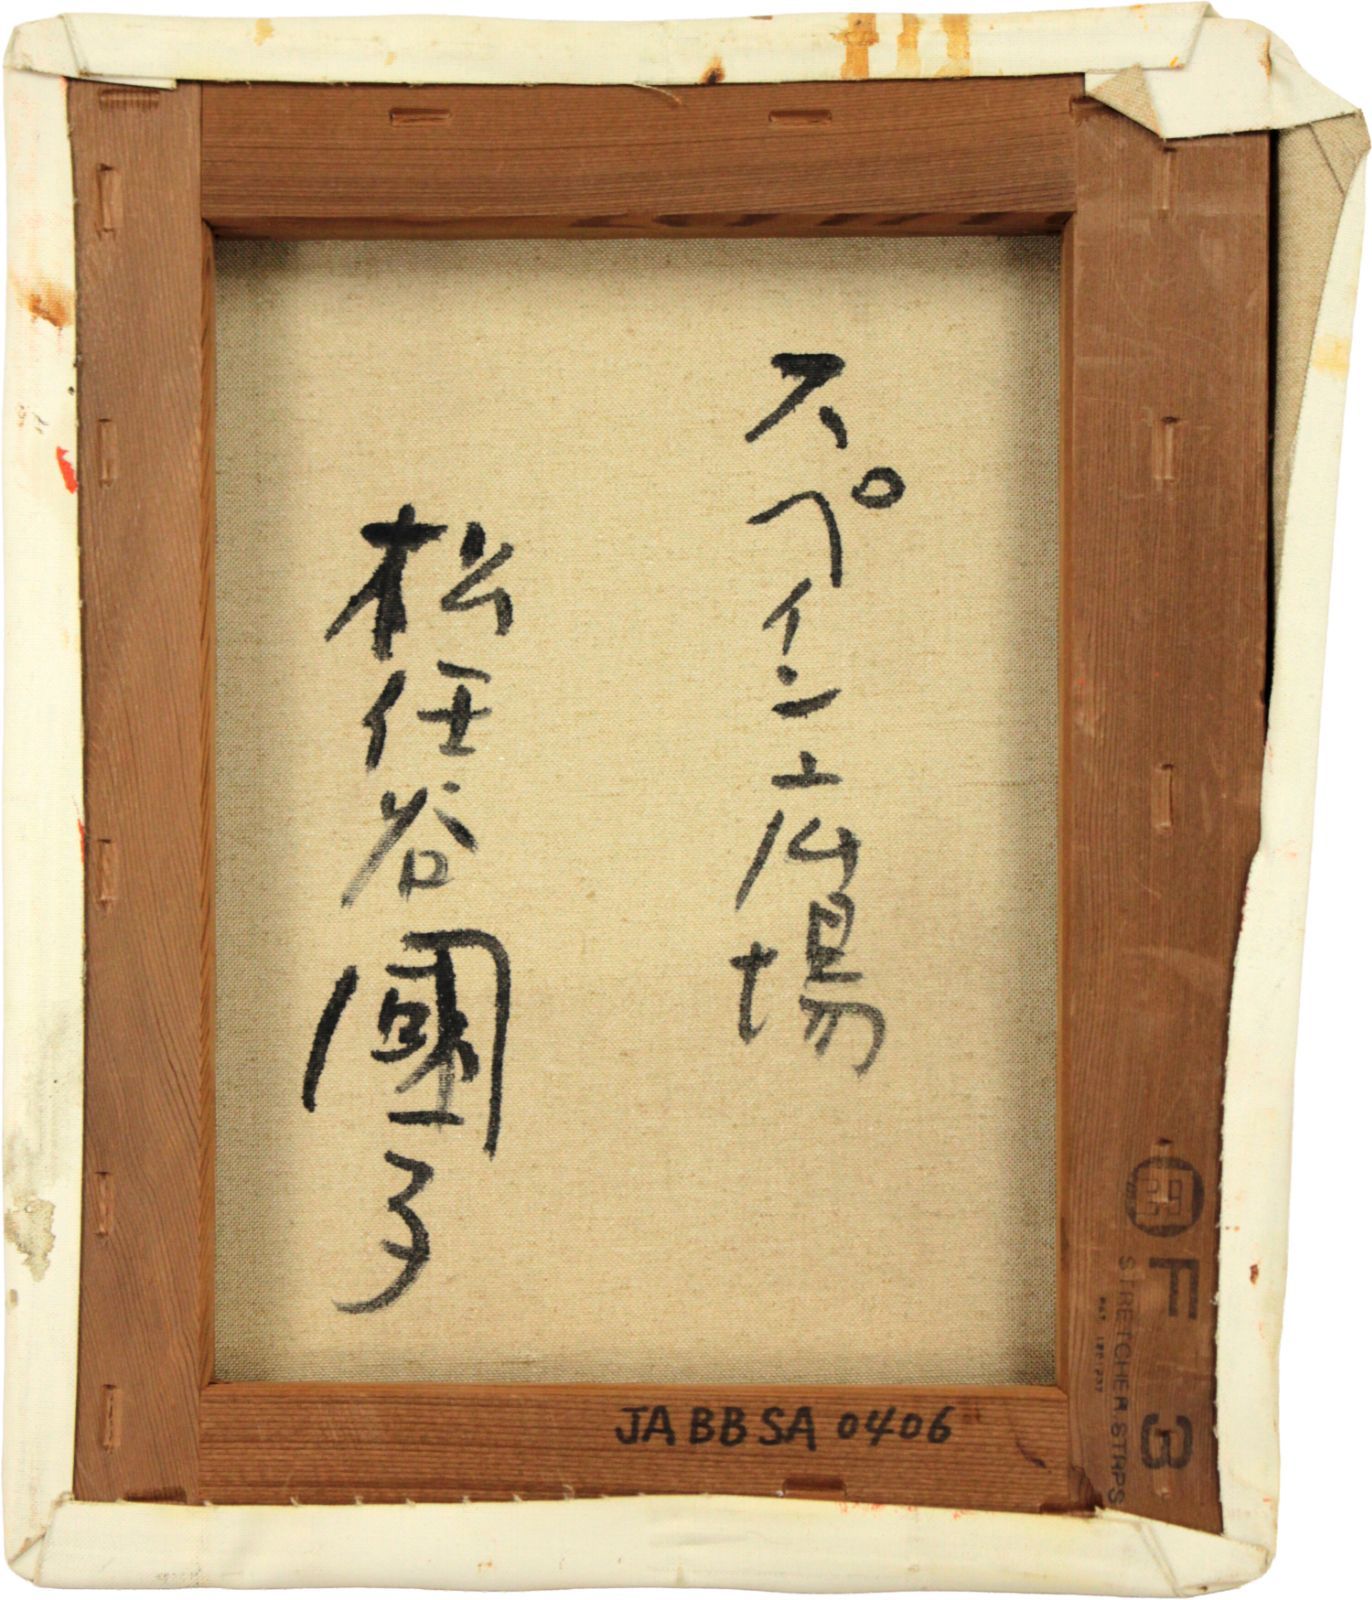 スペイン広場
松任谷國子
JABBSA0406
F 3
STRETCHER STRPS